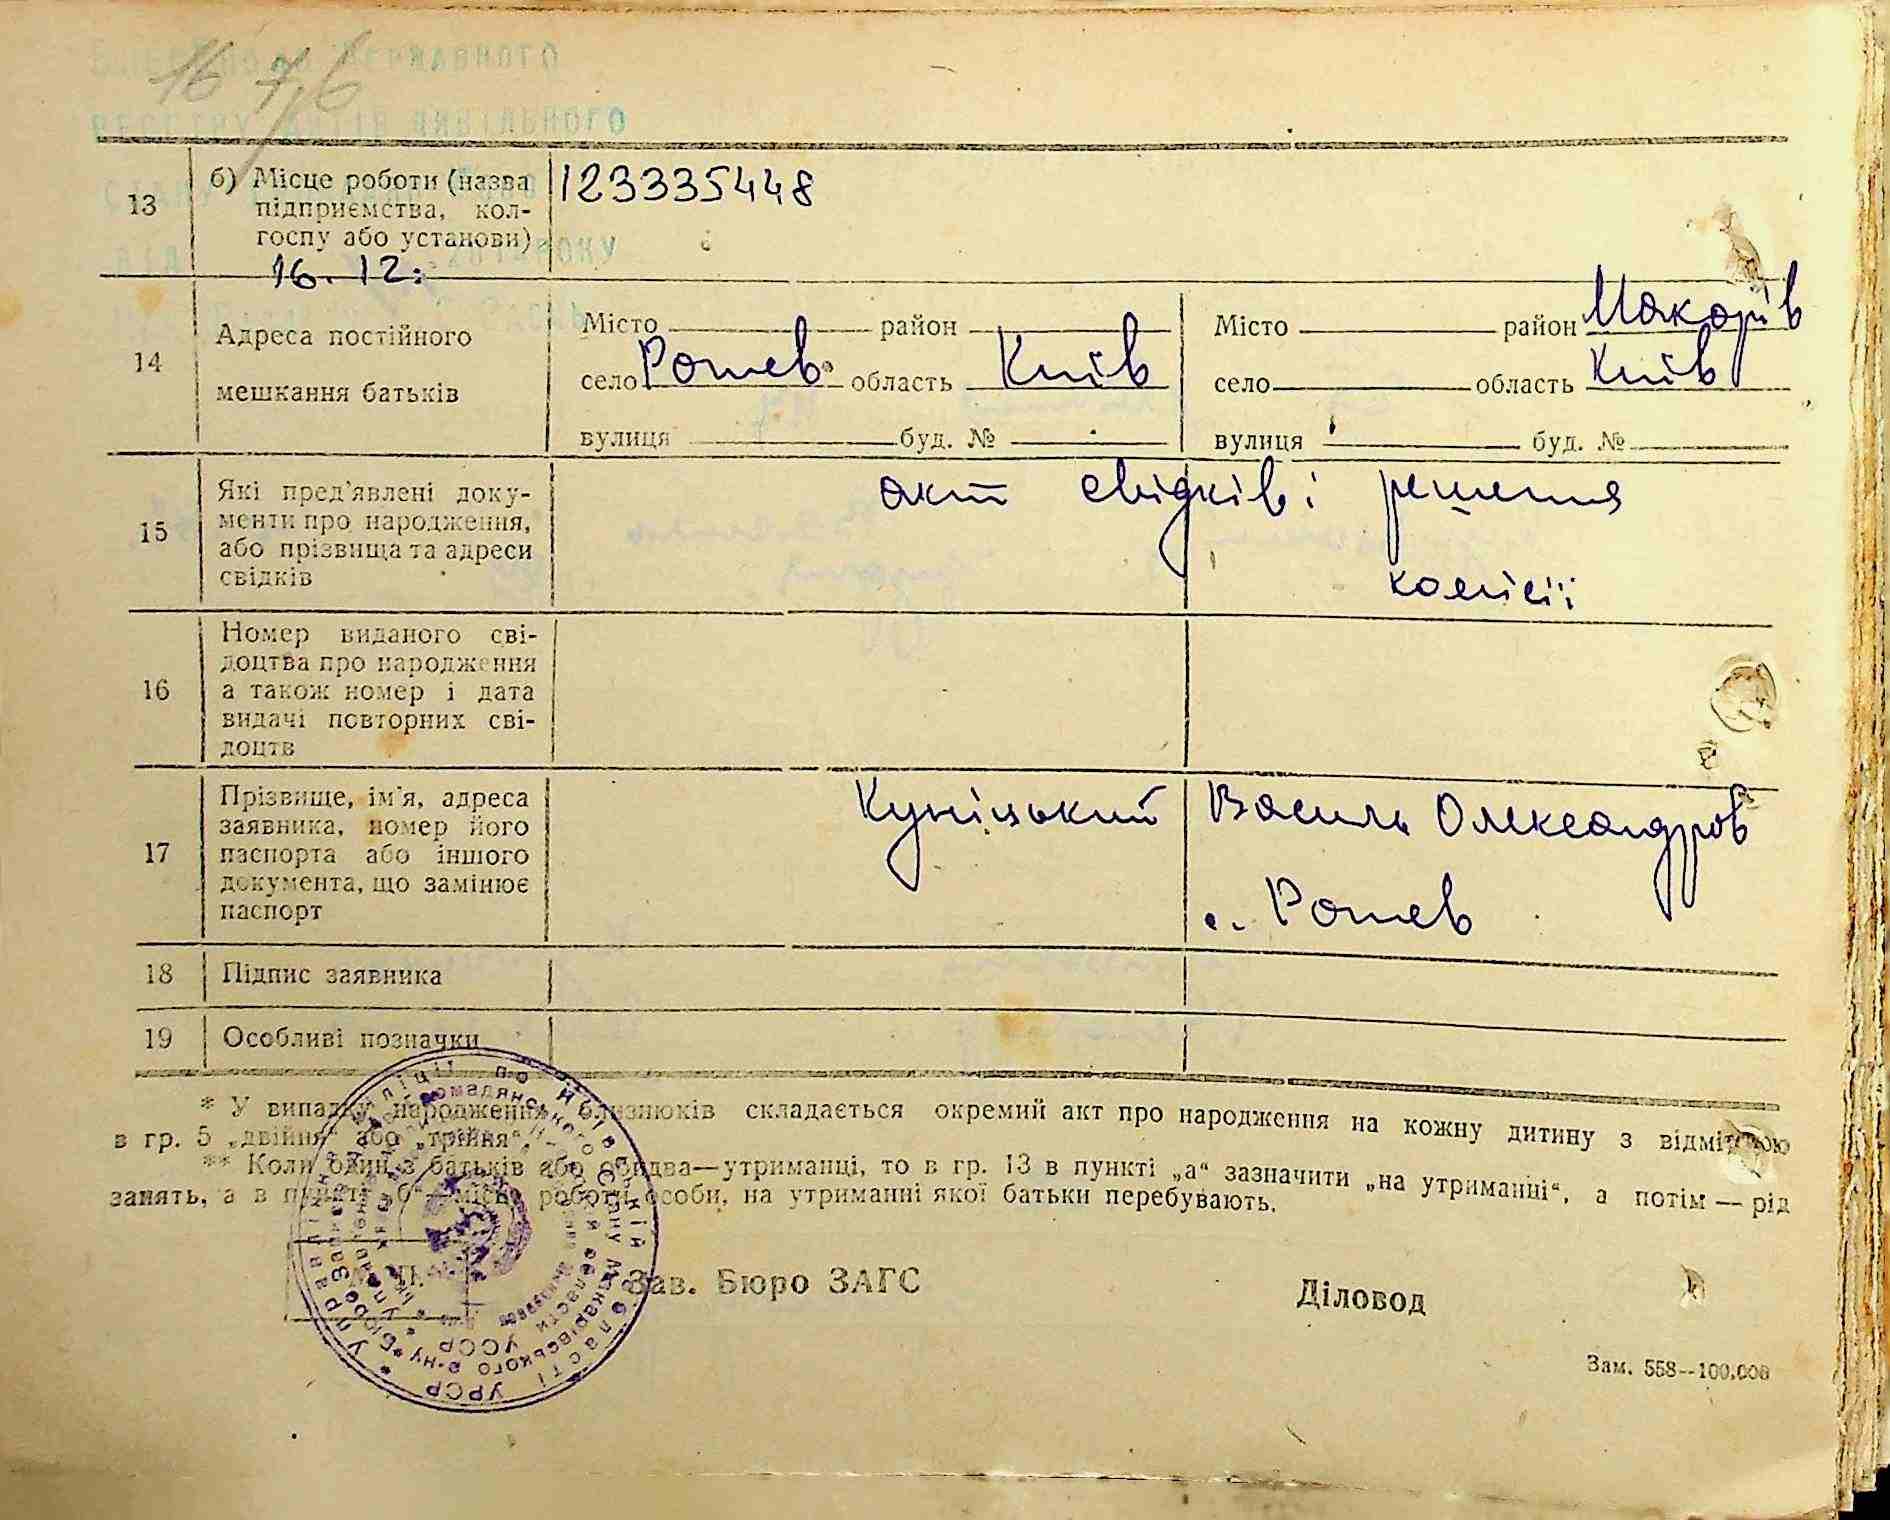 16 7,6
Державного
реєстру актів цивільного
13 б) Місце роботи (назва 123335448
підприємства, кол-
госпу або установи)
16. 12.
14 Адреса постійного
мешкання батьків
Місто район Місто район Макарів
село Рожев область Київ село область Київ
вулиця буд. № вулиця буд. №
15 Які пред'явлені доку- акт свідків і решення
менти про народження,
або прізвища та адреси
свідків комісії
16 Номер виданого сві-
доцтва про народження
а також номер і дата
видачі повторних сві-
доцтв
17 Прізвище, ім'я, адреса Куніцький Василь Олександров
заявника, номер його
паспорта або іншого
документа, що замінює с. Рожев
паспорт
18 Підпис заявника
19 Особливі позначки
* У випадку народження близнюків складається окремий акт про народження на кожну дитину з відміткою
в гр. 5 „двійня“ або „трійня“.
** Коли один з батьків або обидва—утриманці, то в гр. 13 в пункті „а“ зазначити „на утриманні“, а потім — рід
занять, а в пункті „б“—місце роботи особи, на утриманні якої батьки перебувають.
Зав. Бюро ЗАГС Діловод
Зам. 558--100.000